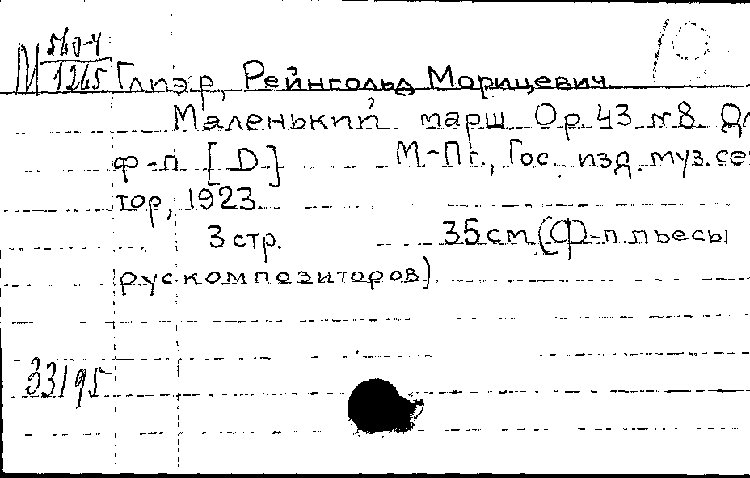 М 560-4
1265
Глиэр, Рейнгольд Морицевич
Маленький марш Ор. 43 №8. Дл
ф-п [D] М-Пг., Гос. изд. муз. сек
тор, 1923.
3 стр. 35 см (Ф-п пьесы
рус композиторов)
33195